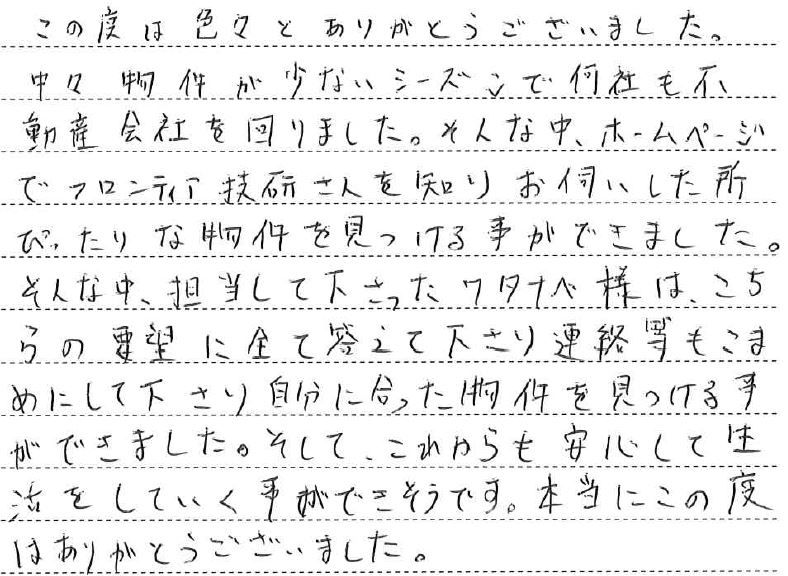 この度は色々とありがとうございました。
中々物件が少ないシーズンで何社も不
動産会社を回りました。そんな中、ホームページ
でフロンティア技研さんを知りお伺いした所
ぴったりな物件を見つける事ができました。
そんな中、担当して下さったワタナベ様は、こち
らの要望に全て答えて下さり連絡等もこま
めにして下さり自分に合った物件を見つける事
ができました。そして、これからも安心して生
活をしていく事ができそうです。本当にこの度
はありがとうございました。